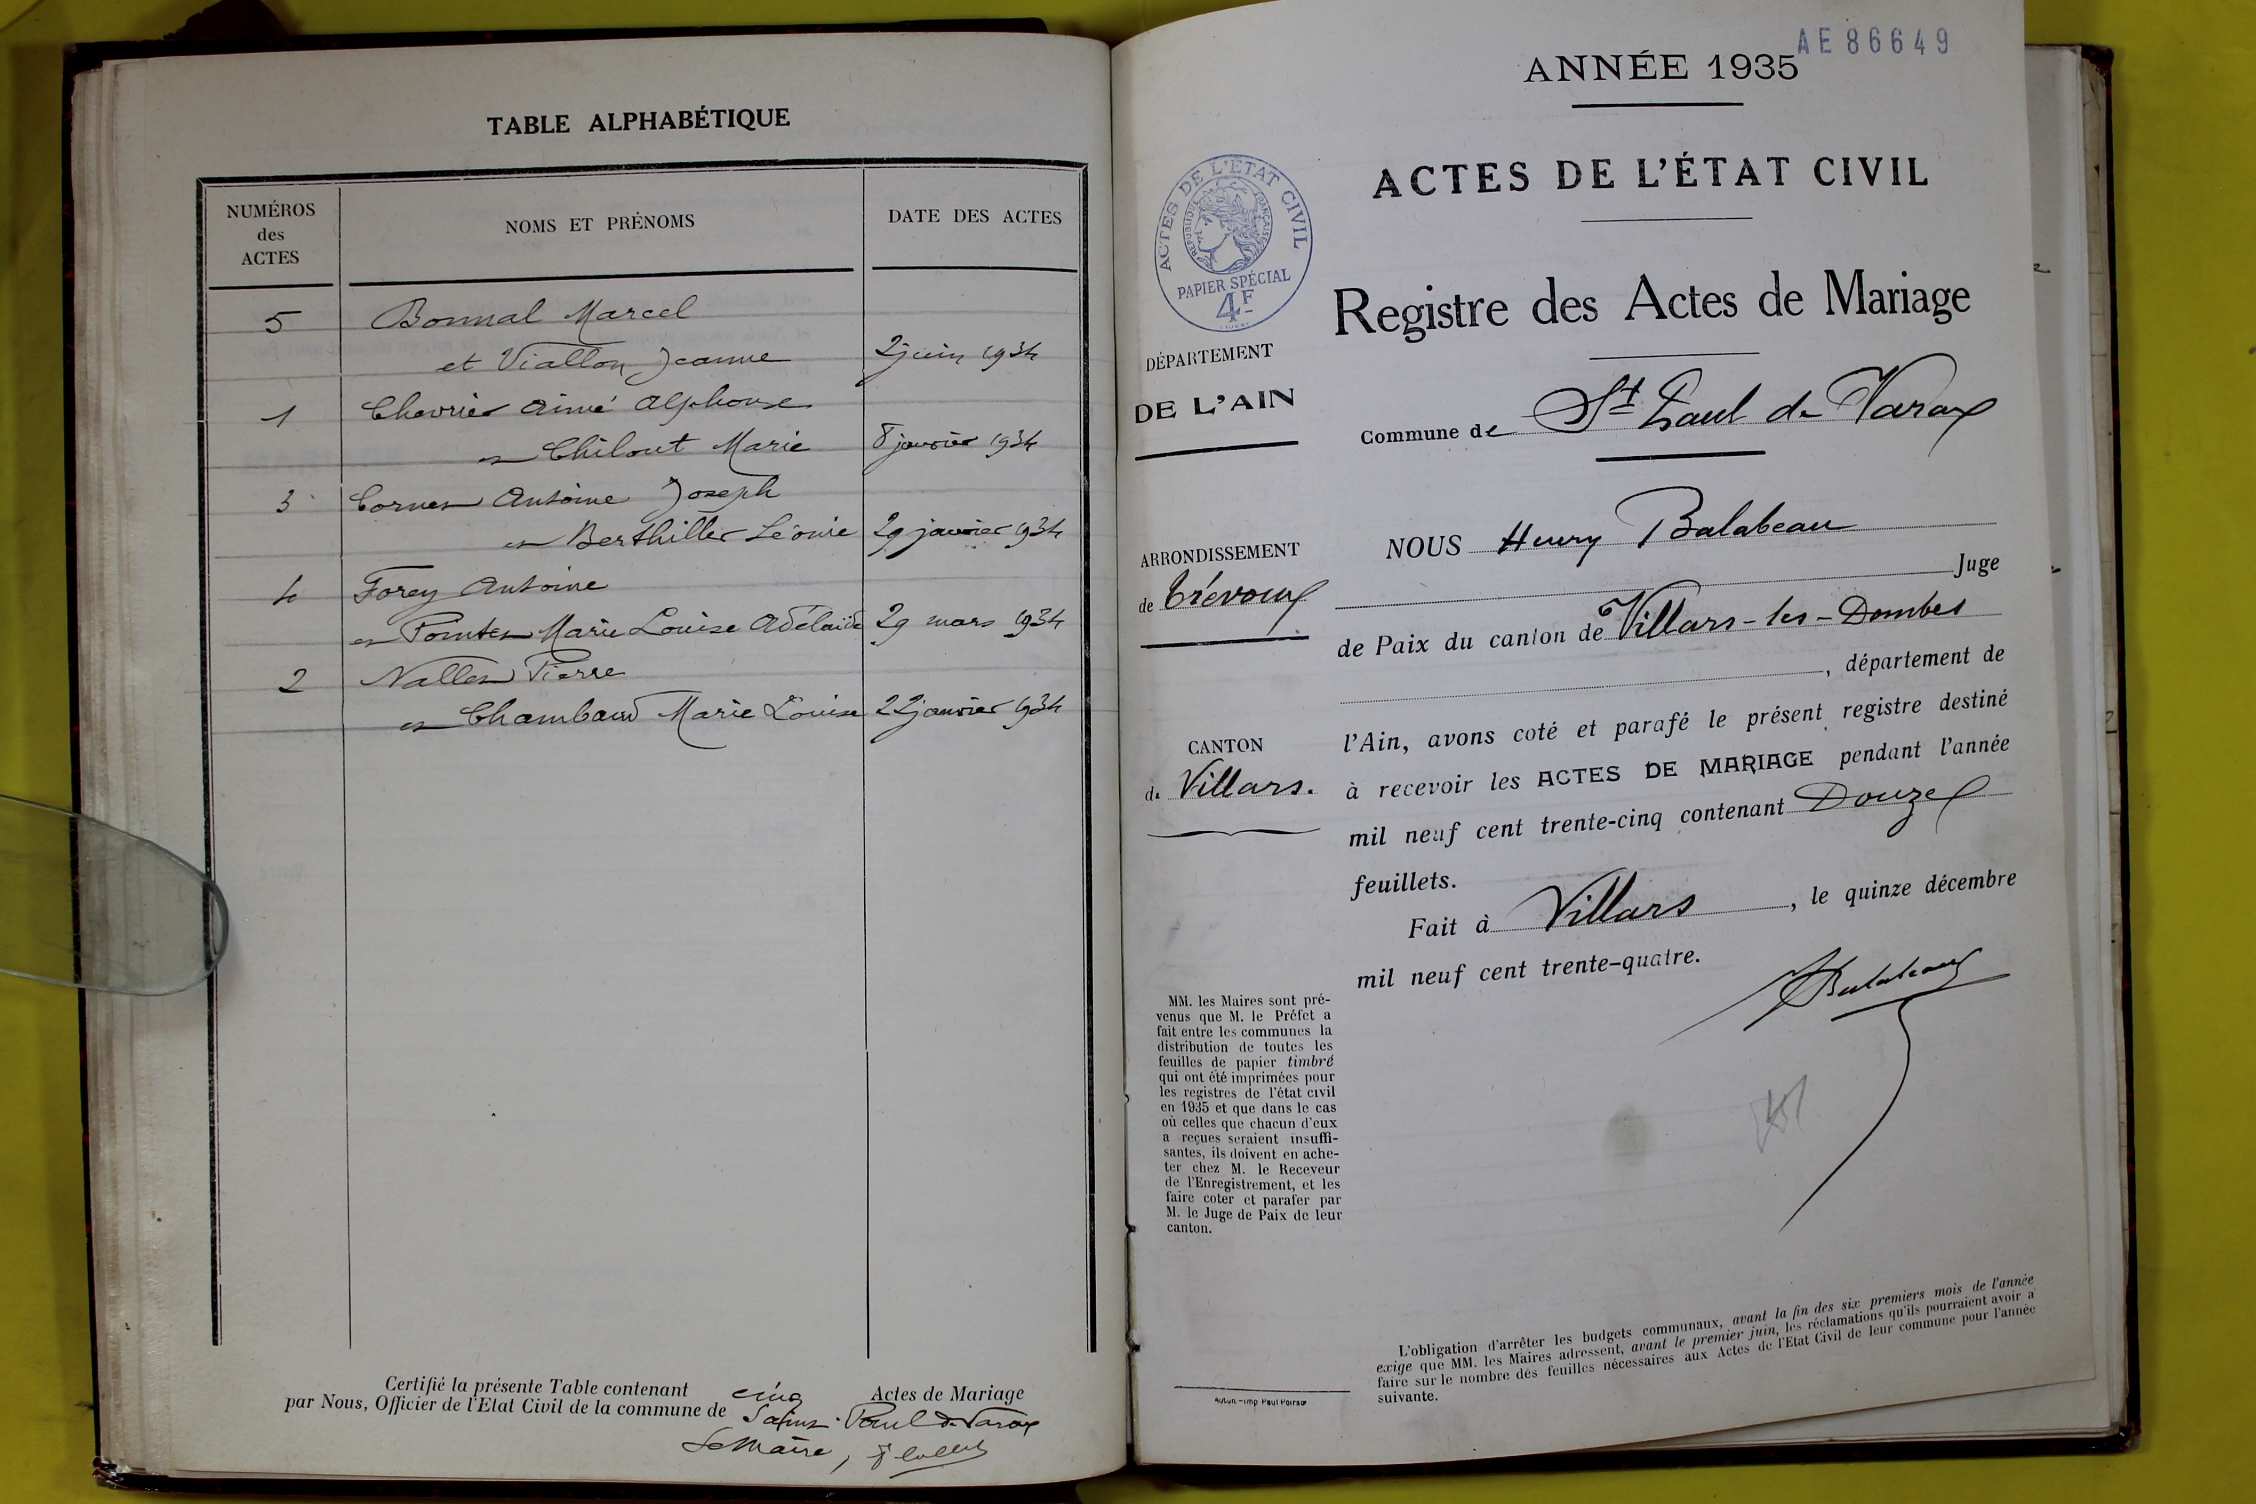 TABLE ALPHABÉTIQUE
NUMÉROS
des
ACTES
NOMS ET PRÉNOMS
DATE DES ACTES
5 Bonnal Marcel
et Viallon Jeanne 2 juin 1934
1 Chevrier Aimé Alphonse
et Chilout Marie 8 janvier 1934
3 Cornet Antoine Joseph
et Berthillier Léonie 29 janvier 1934
4 Forey Antoine
et Marie Louise Adélaïde 29 mars 1934
2 Nallet Pierre
et Chambaud Marie Louise 22 janvier 1934
Certifié la présente Table contenant cinq Actes de Mariage
par Nous, Officier de l'Etat Civil de la commune de Saint-Paul de Varax
Le Maire,
AE 86649
ANNÉE 1935
ACTES DE L'ÉTAT CIVIL
Registre des Actes de Mariage
Commune de St Paul de Varax
ACTES DE L'ÉTAT CIVIL
RÉPUBLIQUE FRANÇAISE
PAPIER SPÉCIAL
4F
DÉPARTEMENT
DE L'AIN
ARRONDISSEMENT
de Trévoux
CANTON
de Villars.
NOUS Henry Balabeau
Juge
de Paix du canton de Villars-les-Dombes
, département de
l'Ain, avons coté et parafé le présent registre destiné
à recevoir les ACTES DE MARIAGE pendant l'année
mil neuf cent trente-cinq contenant Douze
feuillets.
Fait à Villars, le quinze décembre
mil neuf cent trente-quatre.
HBalabeau
MM. les Maires sont pré-
venus que M. le Préfet a
fait entre les communes la
distribution de toutes les
feuilles de papier timbré
qui ont été imprimées pour
les registres de l'état civil
en 1935 et que dans le cas
où celles que chacun d'eux
a reçues seraient insuffi-
santes, ils doivent en ache-
ter chez M. le Receveur
de l'Enregistrement, et les
faire coter et parafer par
M. le Juge de Paix de leur
canton.
L'obligation d'arrêter les budgets communaux, avant la fin des six premiers mois de l'année
exige que MM. les Maires adressent, avant le premier juin, les réclamations qu'ils pourraient avoir à
faire sur le nombre des feuilles nécessaires aux Actes de l'Etat Civil de leur commune pour l'année
suivante.
Autun - Imp Paul Poirson